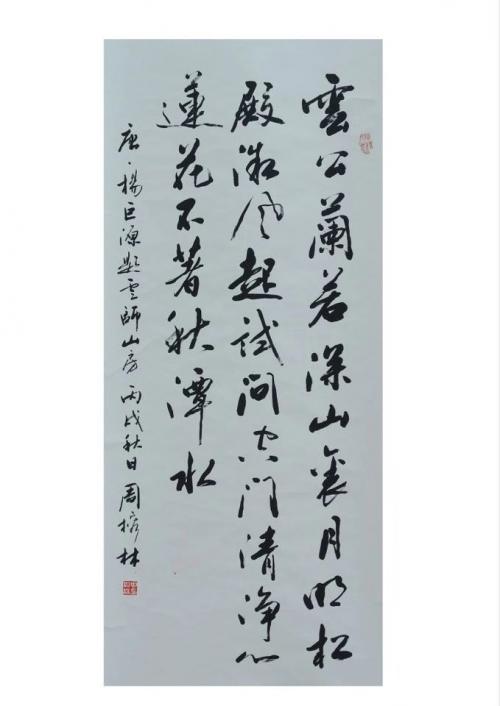 雲公蘭若深山裏月明松
殿微風起試問空門清淨心
蓮花不著秋潭水
唐·楊巨源題雲師山房 丙戌秋日 周榕林